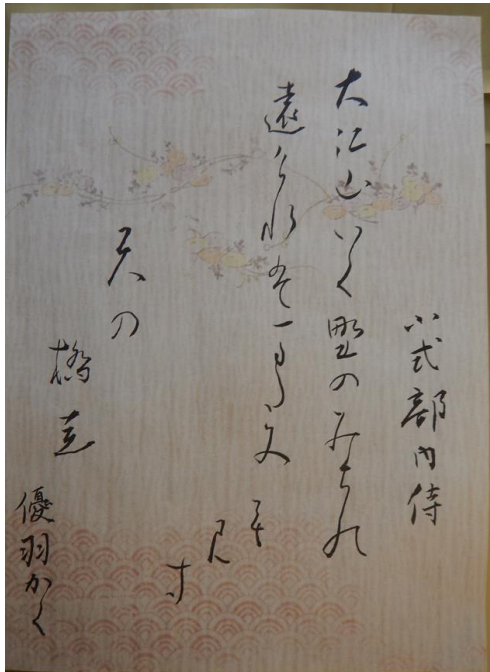 小式部内侍
大江山いく野のみちの
遠けれはまた文
も
見
寸
天の
橋立
優羽かく